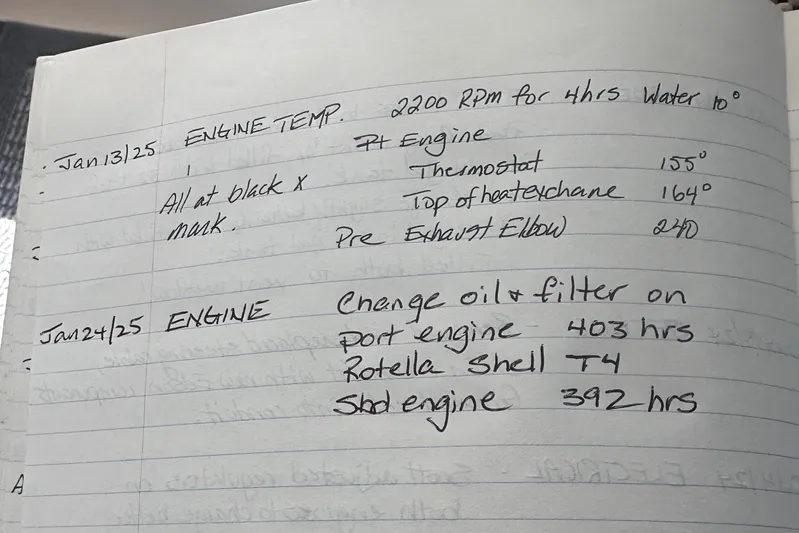 Jan 13/25 ENGINE TEMP. 2200 RPm for 4hrs Water 10°
Pt Engine
All at black x Thermostat 155°
mark. Top of heatexchane 164°
Pre Exhaust Elbow 240
Jan 24/25 ENGINE Change oil & filter on
port engine 403 hrs
Rotella Shell T4
Sbd engine 392 hrs
A